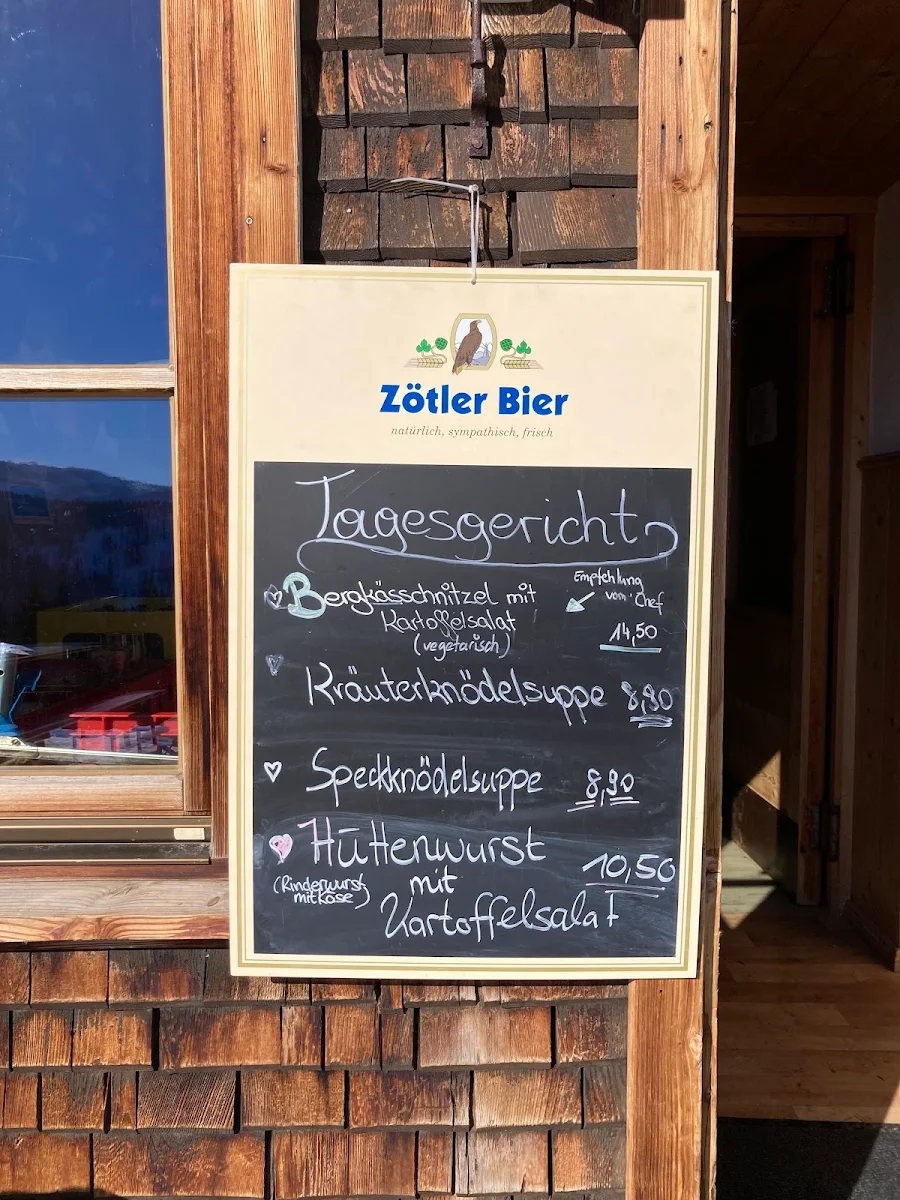 Zötler Bier
natürlich, sympathisch, frisch
Tagesgericht
Bergkässchnitzel mit
Kartoffelsalat
(vegetarisch)
Empfehlung
vom Chef
14,50
Kräuterknödelsuppe 8,90
Speckknödelsuppe 8,90
Hüttenwurst
mit
Kartoffelsalat
10,50
(Rinderwurst
mit Käse)